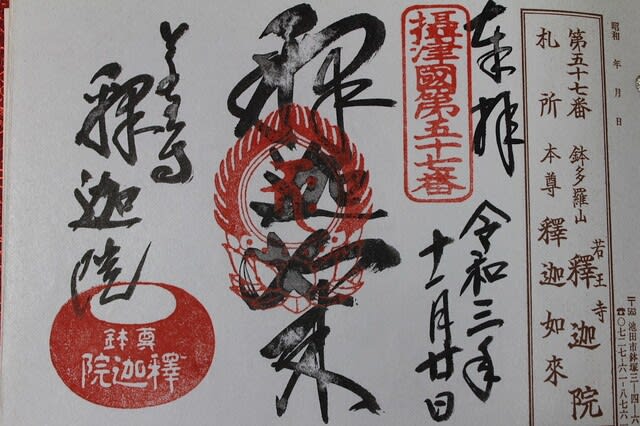 〒563 池田市鉢塚三-四-六
☎〇七二七-六一-八七六
第五十七番 鉢多羅山 若王寺 釋迦院
札所 本尊 釋迦如來
昭和 年 月 日
奉拝
令和三年
十一月廿日
攝津國第五十七番
釋迦如来
若王寺
釋迦院
尊鉢
釋迦院